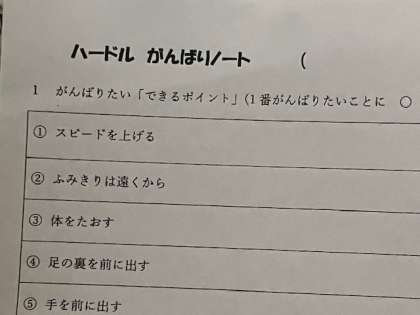 ハードル がんばりノート (
1 がんばりたい「できるポイント」(1番がんばりたいことに ○
① スピードを上げる
② ふみきりは遠くから
③ 体をたおす
④ 足の裏を前に出す
⑤ 手を前に出す